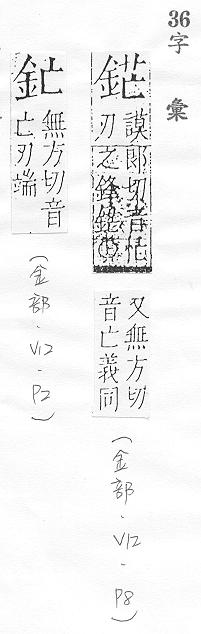 36
字彙
鋩
謨郎切音忙
刃之鋒鋩
又無方切
音亡義同
(金部.V12.P8)
釯
無方切音
亡刃端
(金部.V12.P2)